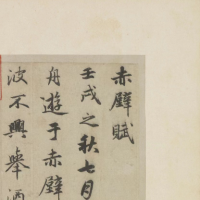 赤壁賦
壬戌之秋七月
舟遊于赤壁
波不興舉酒